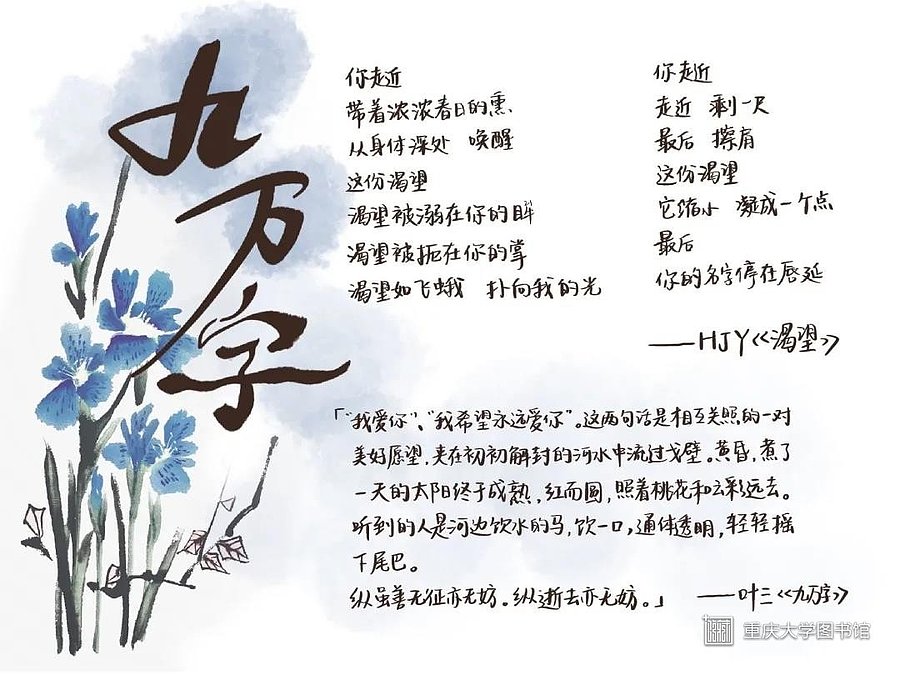 九万字
你走近
带着浓浓春日的熏
从身体深处 唤醒
这份渴望
渴望被溺在你的眸
渴望被扼在你的掌
渴望如飞蛾 扑向我的光
你走近
走近 剩一尺
最后 擦肩
这份渴望
它缩小 凝成一个点
最后
你的名字停在唇延
——HJY《渴望》
「“我爱你”、“我希望永远爱你”。这两句话是相互关照的一对
美好愿望,夹在初初解封的河水中流过戈壁。黄昏,煮了
一天的太阳终于成熟,红而圆,照着桃花和云彩远去。
听到的人是河边饮水的马,饮一口,通体透明,轻轻摇
下尾巴。
纵虽善无征亦无妨。纵逝去亦无妨。」 ——叶三《九万字》
重庆大学图书馆